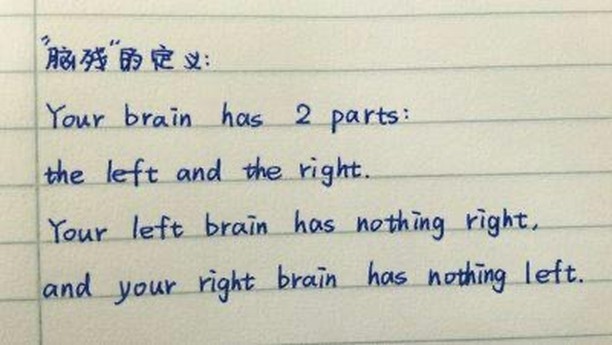 "脑残"的定义:
Your brain has 2 parts:
the left and the right.
Your left brain has nothing right,
and your right brain has nothing left.